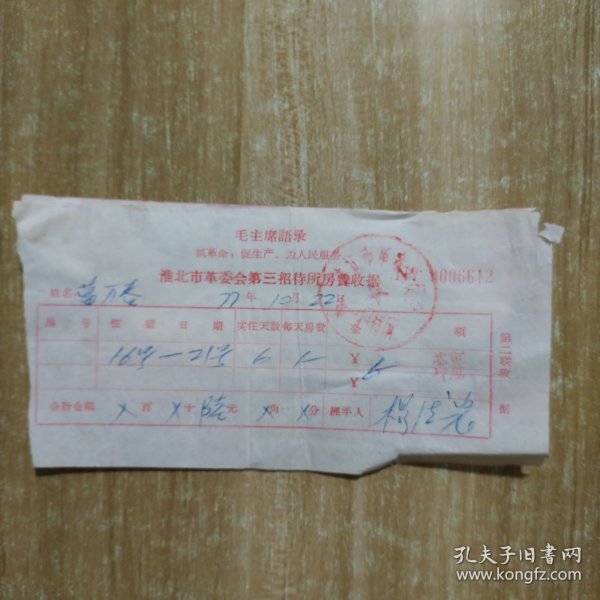 毛主席語录
抓革命，促生产，为人民服务
淮北市革委会第三招待所房费收据 № 0006612
姓名 77年10月22日
房号 住宿日期 实住天数 每天房费 金额
16号—21号 6 1—
¥ 6
合計金額 X百X十陆元X角X分 經手人 杨
第二联收据
孔夫子旧书网
www.kongfz.com